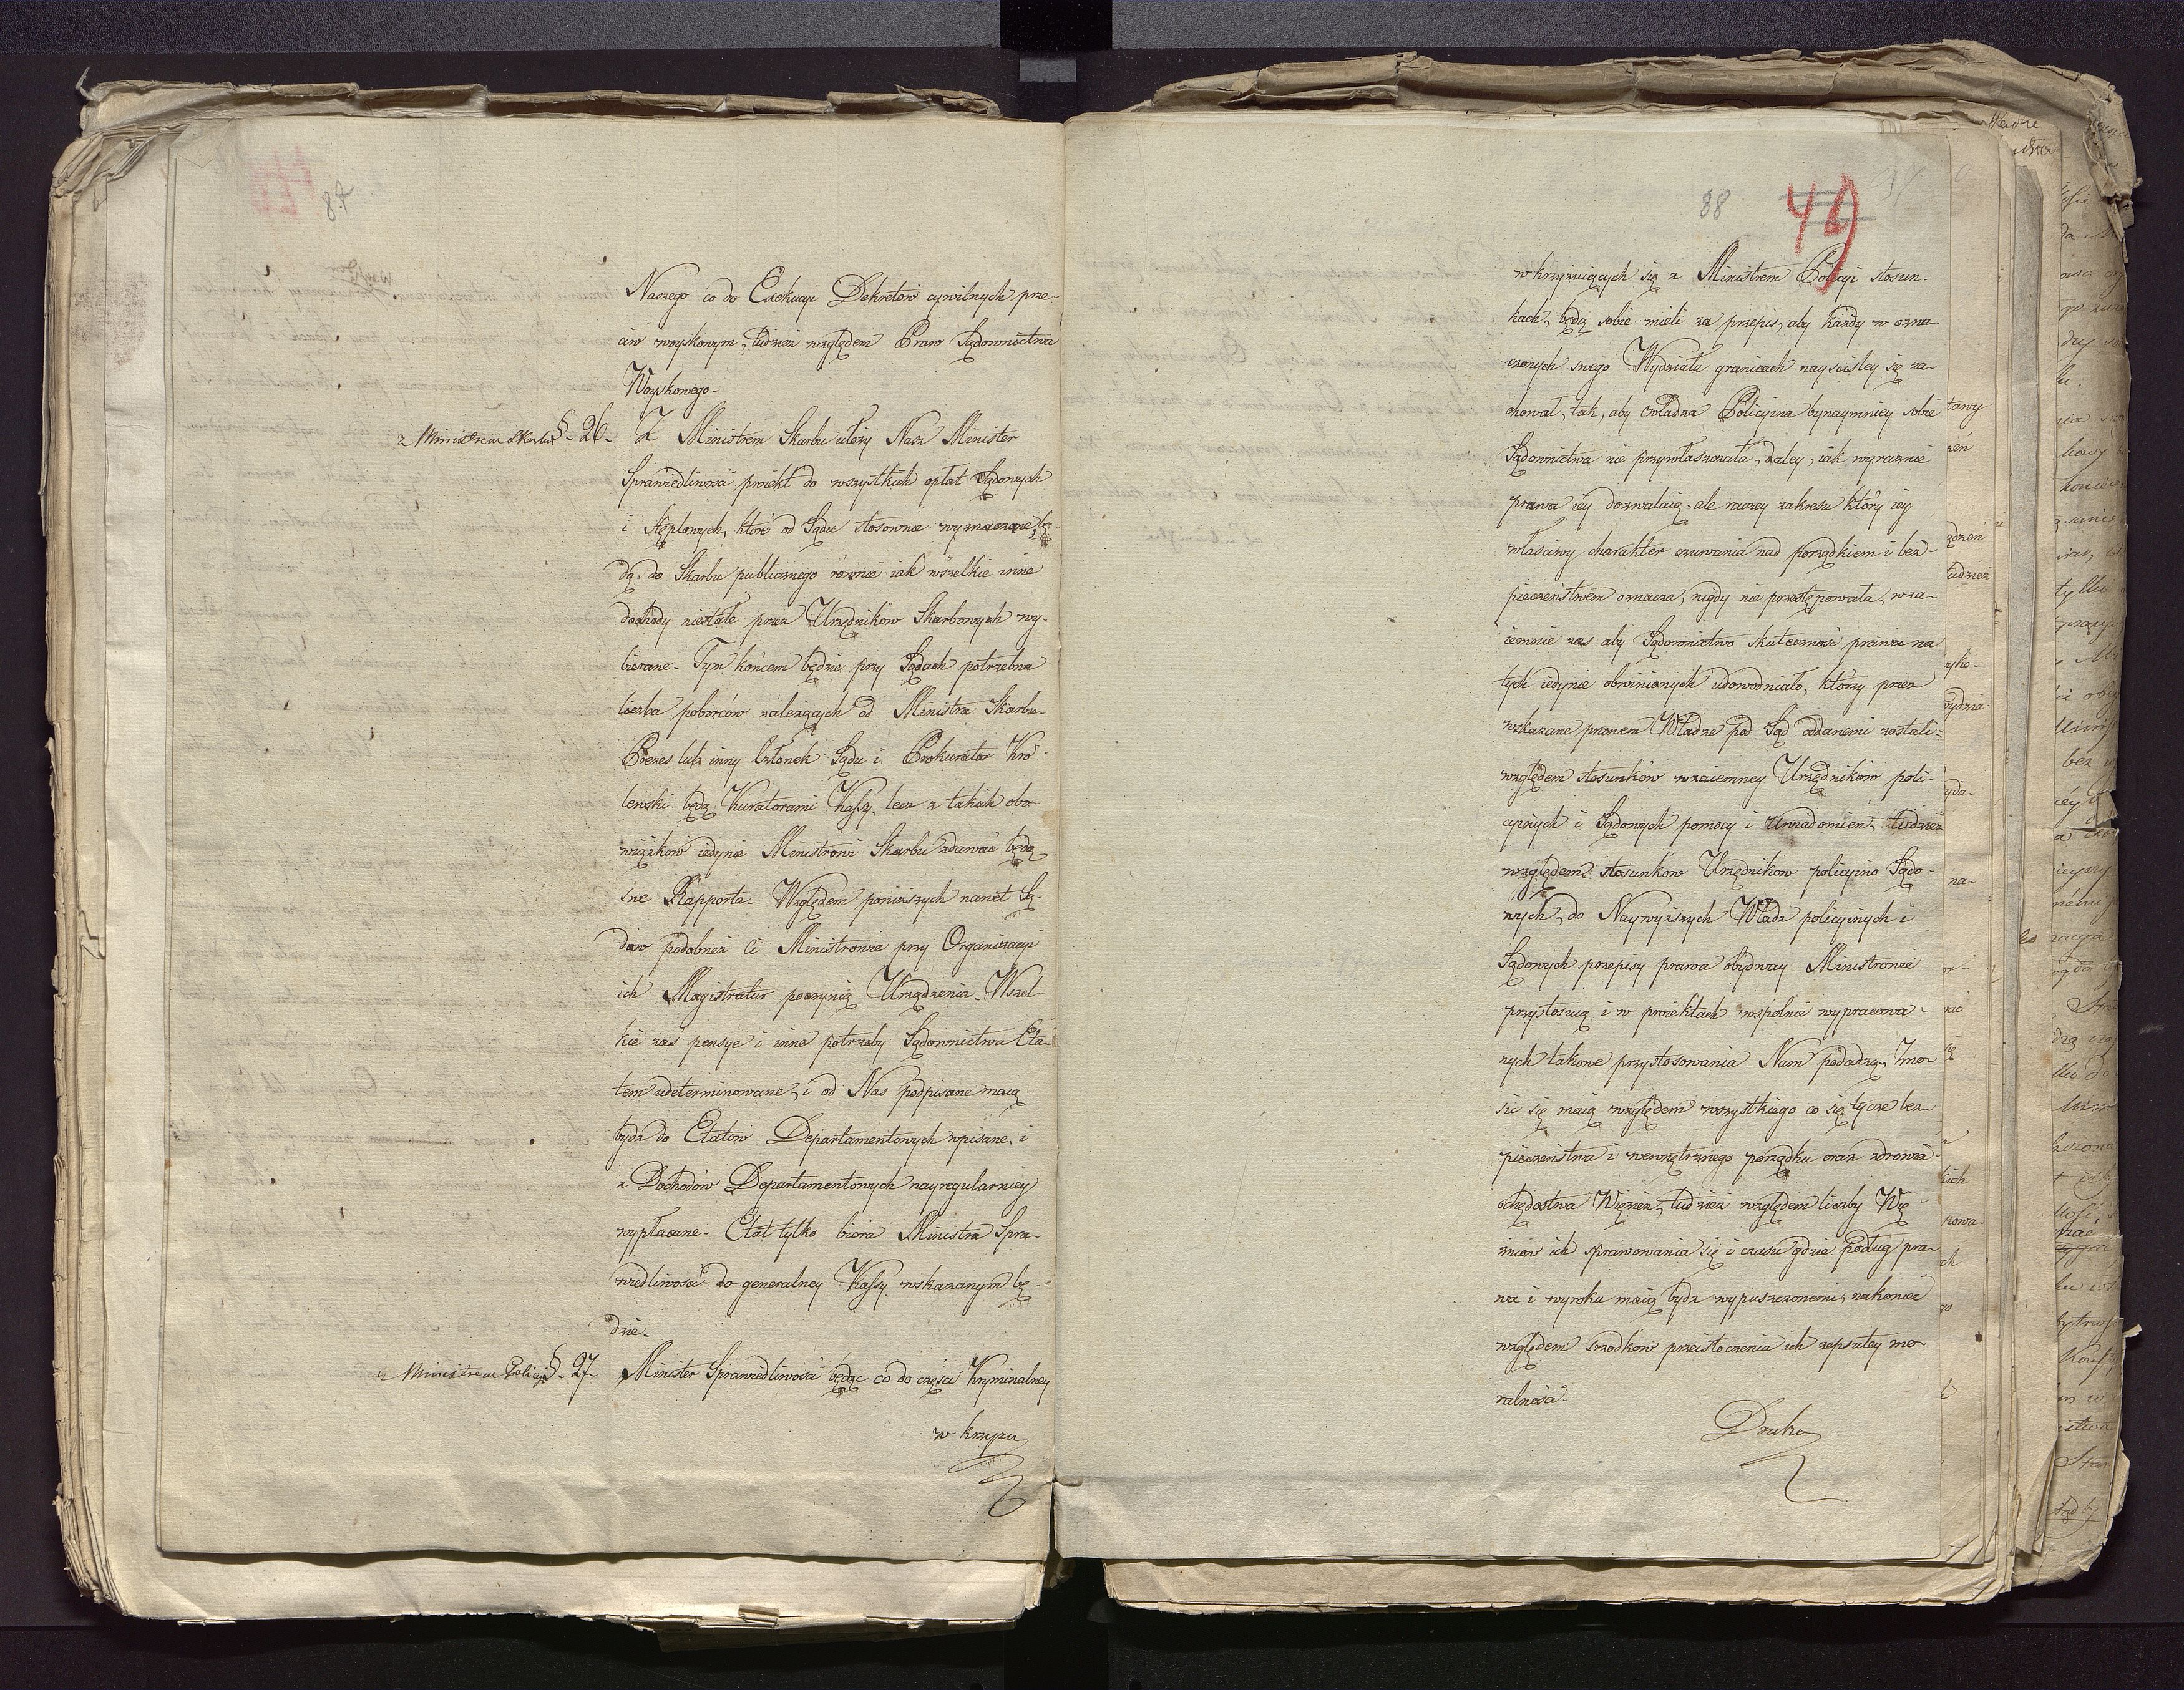 87
Naszego co do Exekucyi Dekretów cywilnych prze-
ciw woyskowym, tudzież względem Praw Sądownictwa
Woyskowego-
z Ministrem Skarbu §-26- Z Ministrem Skarbu ułoży Nasz Minister
Sprawiedliwości proiekt do wszystkich opłat Sądowych
i stęplowych, które od Sądu stosownie wyznaczone bę-
dą, do Skarbu publicznego równie iak wszelkie inne
dochody niestałe przez Urzędników Skarbowych wy-
bierane- Tym końcem będzie przy Sądach potrzebna
liczba poborców zależących od Ministra Skarbu-
Prezes lub inny Członek Sądu i Prokurator Kró-
lewski będą Kuratorami Kassy, lecz z takich obo-
wiązków iedynie Ministrowi Skarbu zdawać będą
swe Rapporta- Względem poniższych nawet Są-
dów podobnież ci Ministrowie przy Organizacyi
ich Magistratur poczynią Urządzenia- Wszel-
kie zaś pensye i inne potrzeby Sądownictwa Eta-
tem udeterminowane, i od Nas podpisane maią
bydź do Etatów Departamentowych wpisane, i
z Dochodów Departamentowych nayregularniey
wypłacane- Etat tylko bióra Ministra Spra-
wiedliwości do generalney Kassy wskazanym bę-
dzie-
z Ministrem Policyi §-27- Minister Sprawiedliwości będąc co do części Kryminalney
w krzyżu
88
49
w krzyżuiących się z Ministrem Policyi stosun-
kach, będą sobie mieli za przepis, aby każdy w ozna-
czonych swego Wydziału granicach nayściśley się za-
chował, tak, aby władza Policyina bynaymniey sobie
Sądownictwa nie przywłaszczała, daley, iak wyraźnie
prawa iéy dozwalaią, ale raczey zakresu który iey
właściwy charakter czuwania nad porządkiem i bez-
pieczeństwem oznacza, nigdy nie przestępowała, wza-
iemnie zaś aby Sądownictwo skuteczność prawa na
tych iedynie obwinionych udowodniało, którzy przez
wskazane prawem Władze pod Sąd oddanemi zostali-
względem stosunków wzaiemney Urzędników poli-
cyinych i Sądowych pomocy i Uwiadomień, tudzież
względem stosunków Urzędników policyino Sądo-
wych, do Naywyższych Władz policyinych i
Sądowych przepisy prawa obydway Ministrowie
przystosuią i w proiektach wspólnie wypracowa-
nych takowe przystosowania Nam podadzą, Zno-
sić się maią względem wszystkiego co się tycze bez-
pieczeństwa i wewnętrznego porządku oraz zdrowia
ochędostwa Więzień, tudzież względem liczby Wię-
źniów ich sprawowania się i czasu gdzie podług pra-
wa i wyroku maią bydź wypuszczonemi, nakoniec
względem srzodków przeistoczenia ich zepsutey mo-
ralności-
Druko